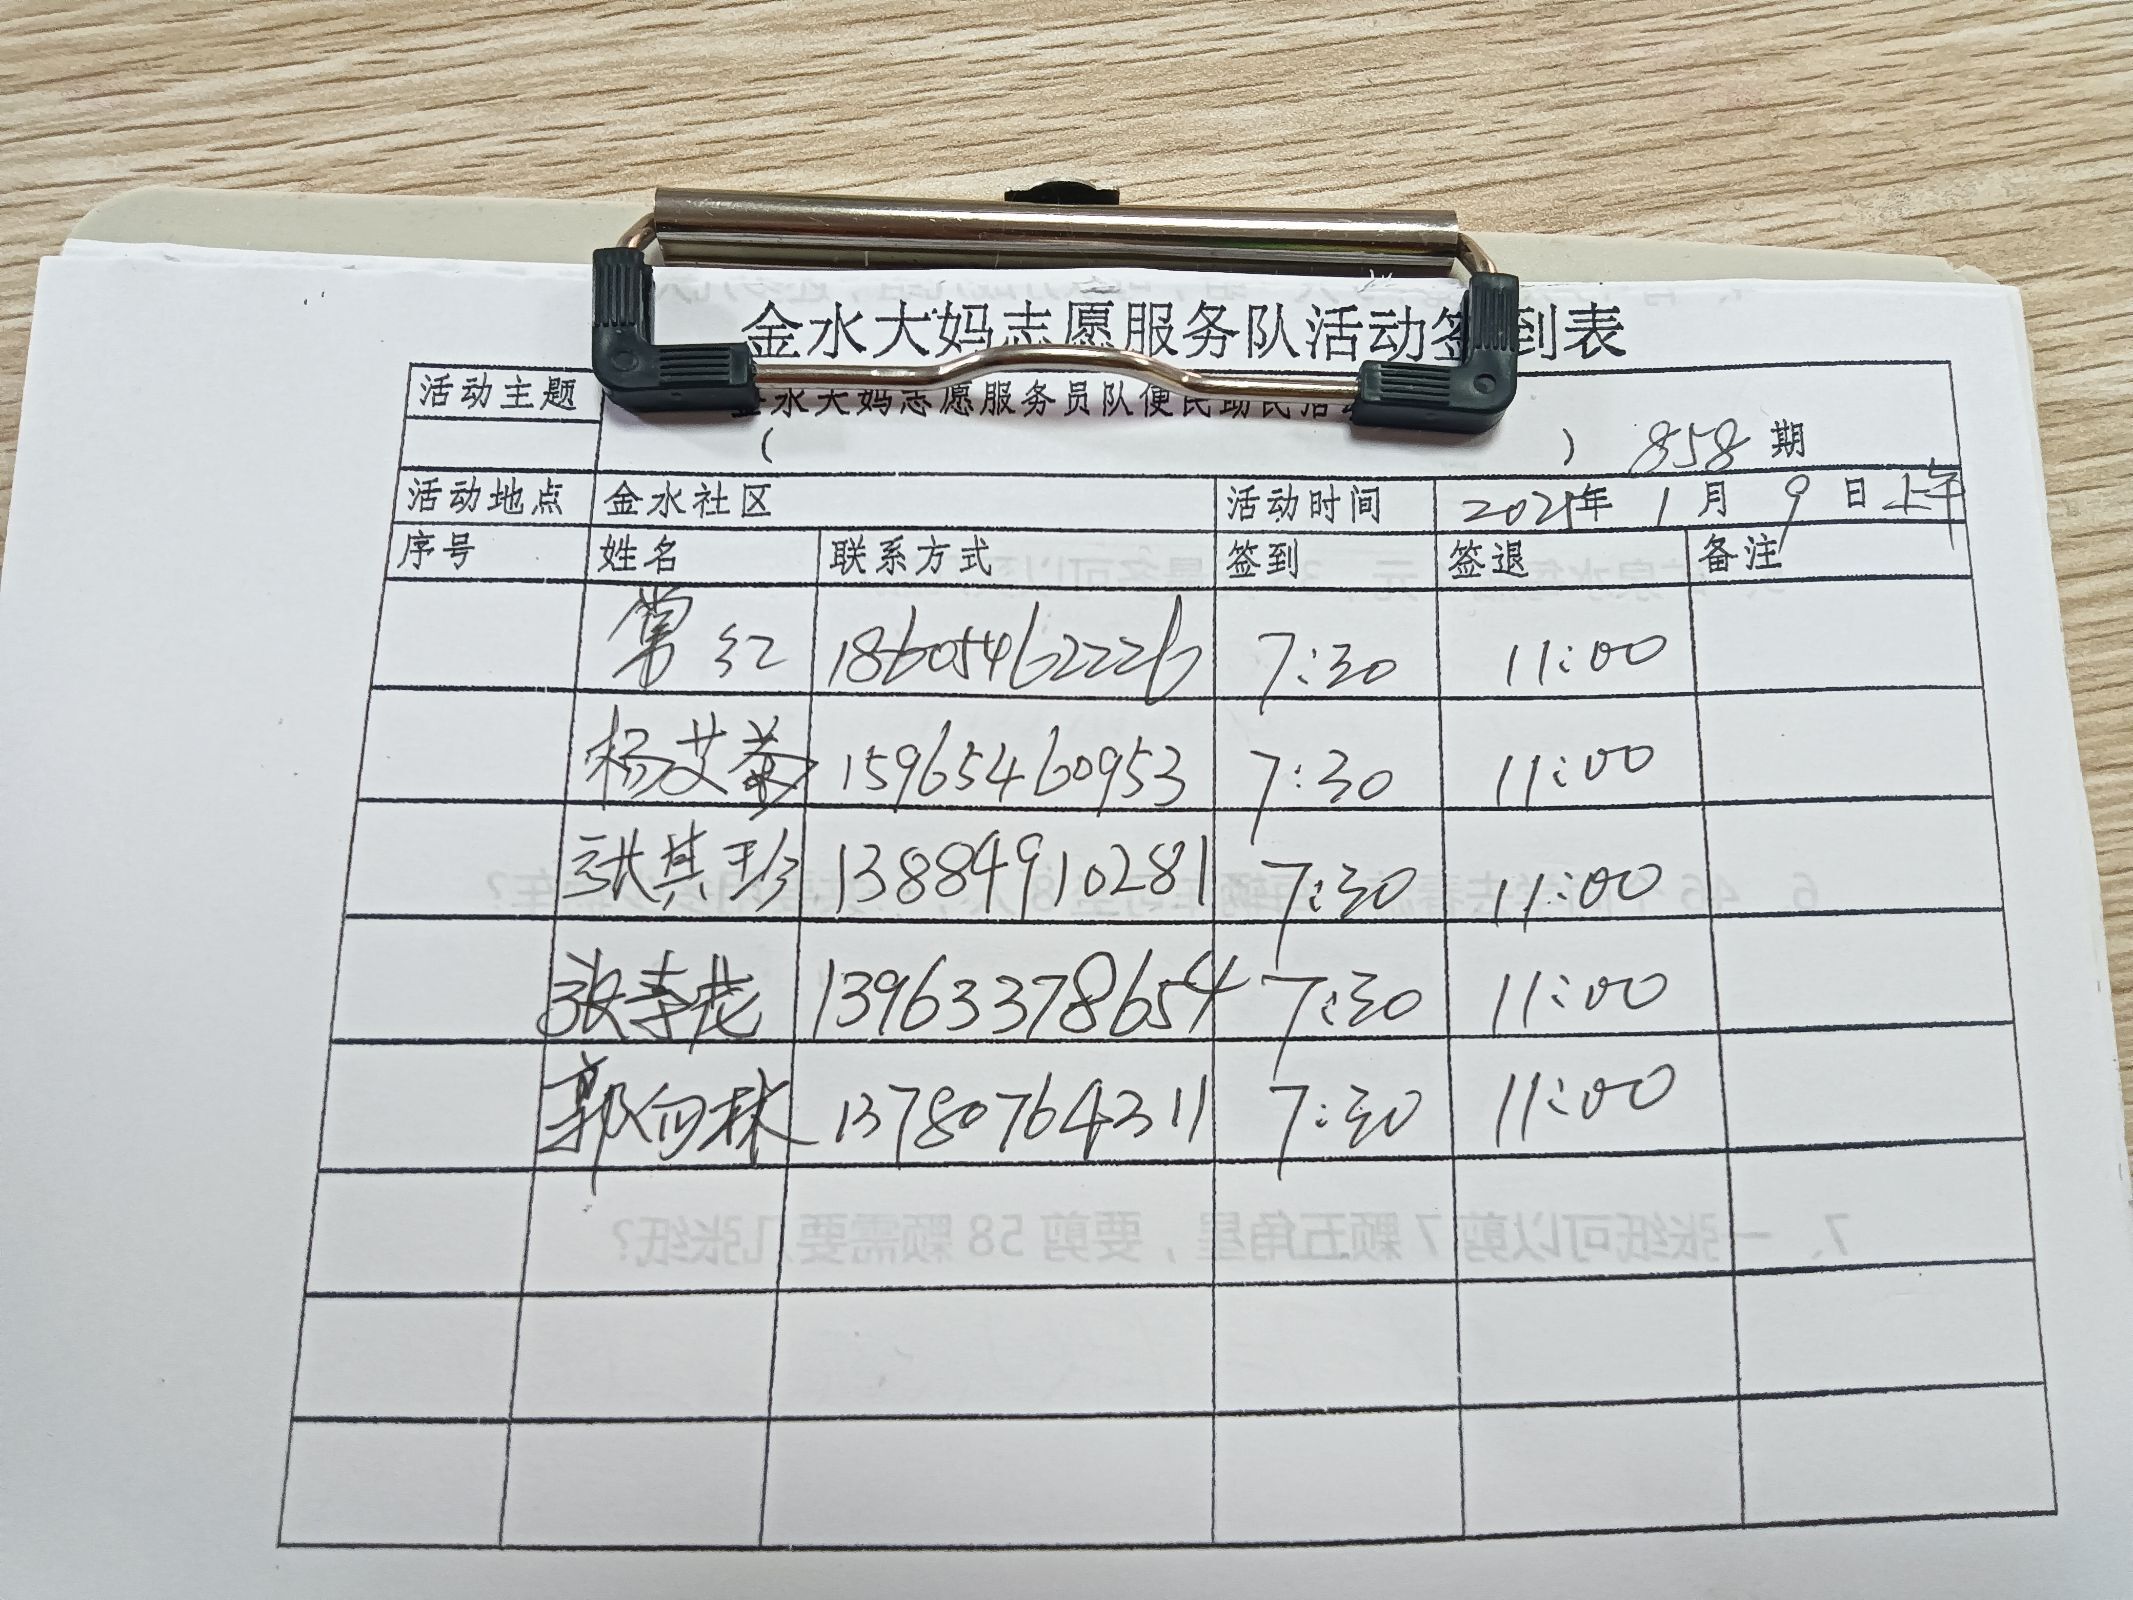 金水大妈志愿服务队活动签到表
活动主题 金水大妈志愿服务员队便民助民活
( ) 858 期
活动地点 金水社区 活动时间 2021年 1 月 9 日 上午
序号 姓名 联系方式 签到 签退 备注
常红 18605462226 7:30 11:00
杨艾 15965460953 7:30 11:00
张其珍 13884910281 7:30 11:00
张 13963378654 7:30 11:00
郭向林 13780764311 7:30 11:00
7、一张纸可以剪 7 颗五角星，要剪 58 颗需要几张纸？